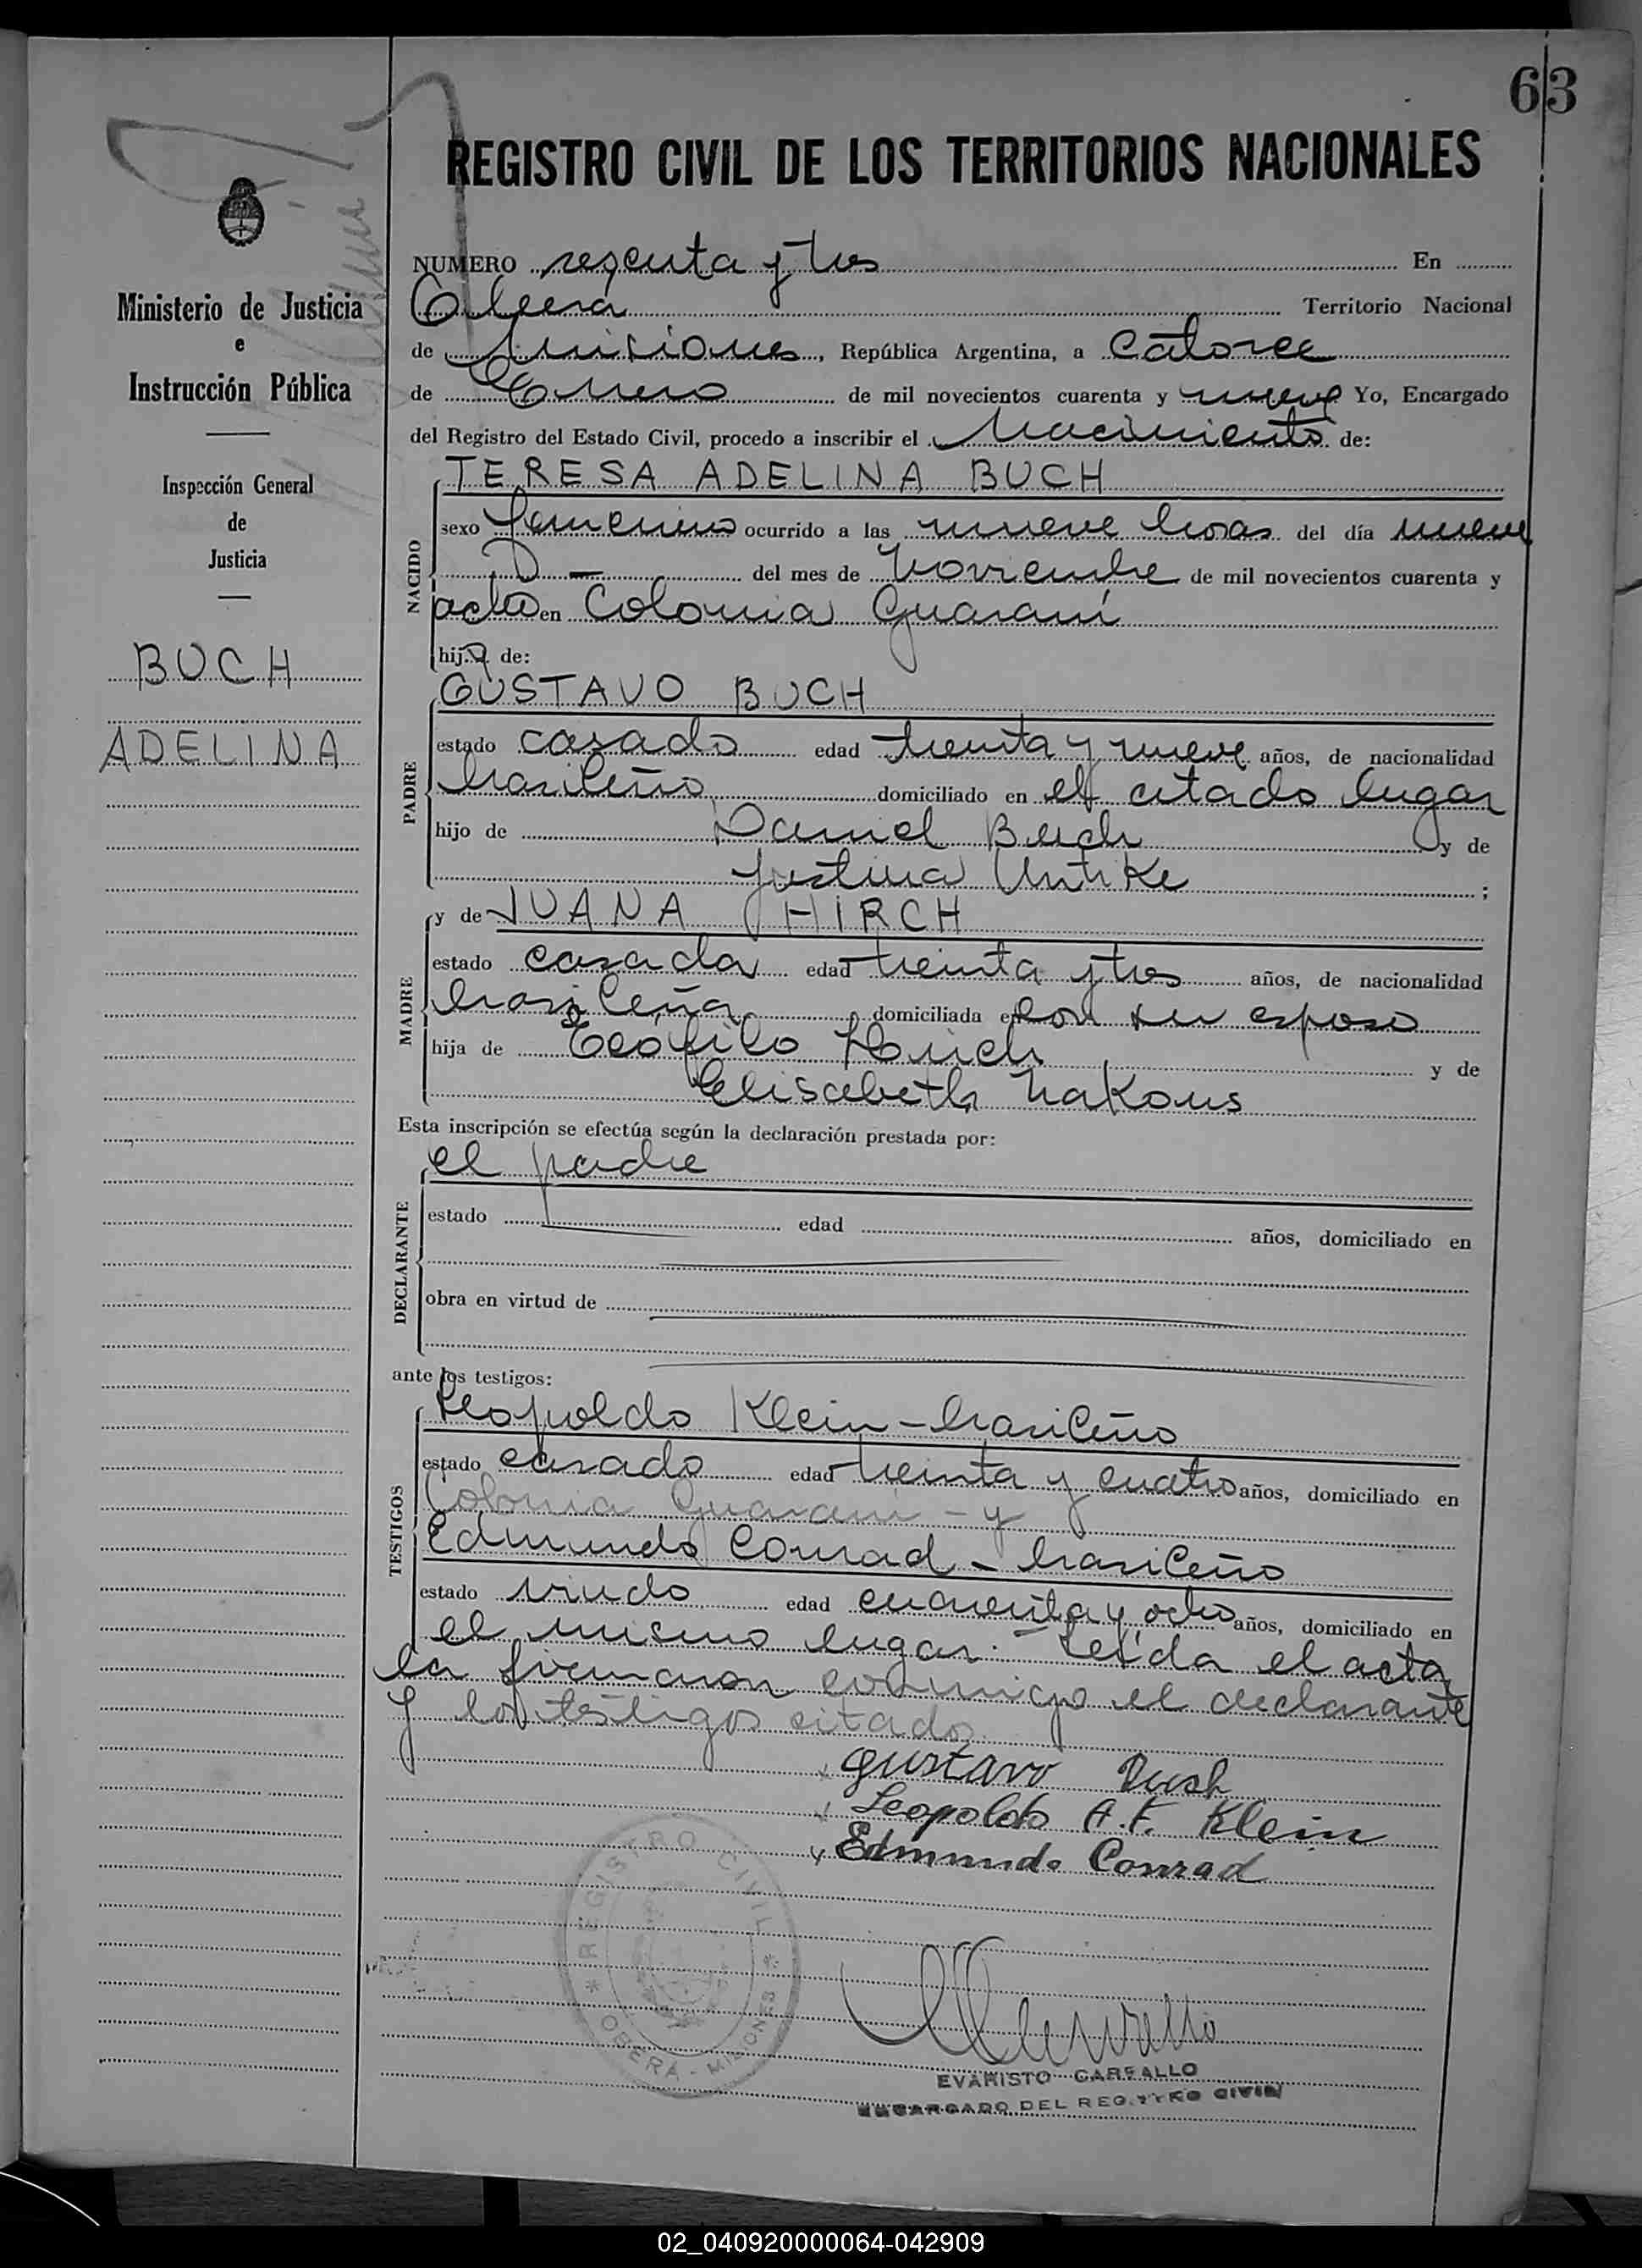 63
REGISTRO CIVIL DE LOS TERRITORIOS NACIONALES
Ministerio de Justicia
e
Instrucción Pública
Inspección General
de
Justicia
BUCH
ADELINA
NUMERO sesenta y tres En
Oberá Territorio Nacional
de Misiones, República Argentina, a catorce
de Enero de mil novecientos cuarenta y nueve Yo, Encargado
del Registro del Estado Civil, procedo a inscribir el Nacimiento de:
NACIDO
TERESA ADELINA BUCH
sexo femenino ocurrido a las nueve horas del día nueve
del mes de Noviembre de mil novecientos cuarenta y
ocho en Colonia Guaraní
hija de:
PADRE
GUSTAVO BUCH
estado casado edad treinta y nueve años, de nacionalidad
brasileño domiciliado en el citado lugar
hijo de Daniel Buch y de
Justina Untike ;
MADRE
y de JUANA HIRCH
estado casada edad treinta y tres años, de nacionalidad
brasileña domiciliada en con su esposo
hija de Teófilo Hirch y de
Elisabeth Nakous
Esta inscripción se efectúa según la declaración prestada por:
DECLARANTE
el padre
estado edad años, domiciliado en
obra en virtud de
ante los testigos:
TESTIGOS
Leopoldo Klein - brasileño
estado casado edad treinta y cuatro años, domiciliado en
Colonia Guaraní - y
Edmundo Conrad - brasileño
estado viudo edad cuarenta y ocho años, domiciliado en
el mismo lugar. - Leída el acta
la firmaron conmigo el declarante
y los testigos citados.
Gustavo Buch
Leopoldo A.F. Klein
Edmundo Conrad
REGISTRO CIVIL
OBERA - MISIONES
EVARISTO CARBALLO
ENCARGADO DEL REGISTRO CIVIL
02_040920000064-042909